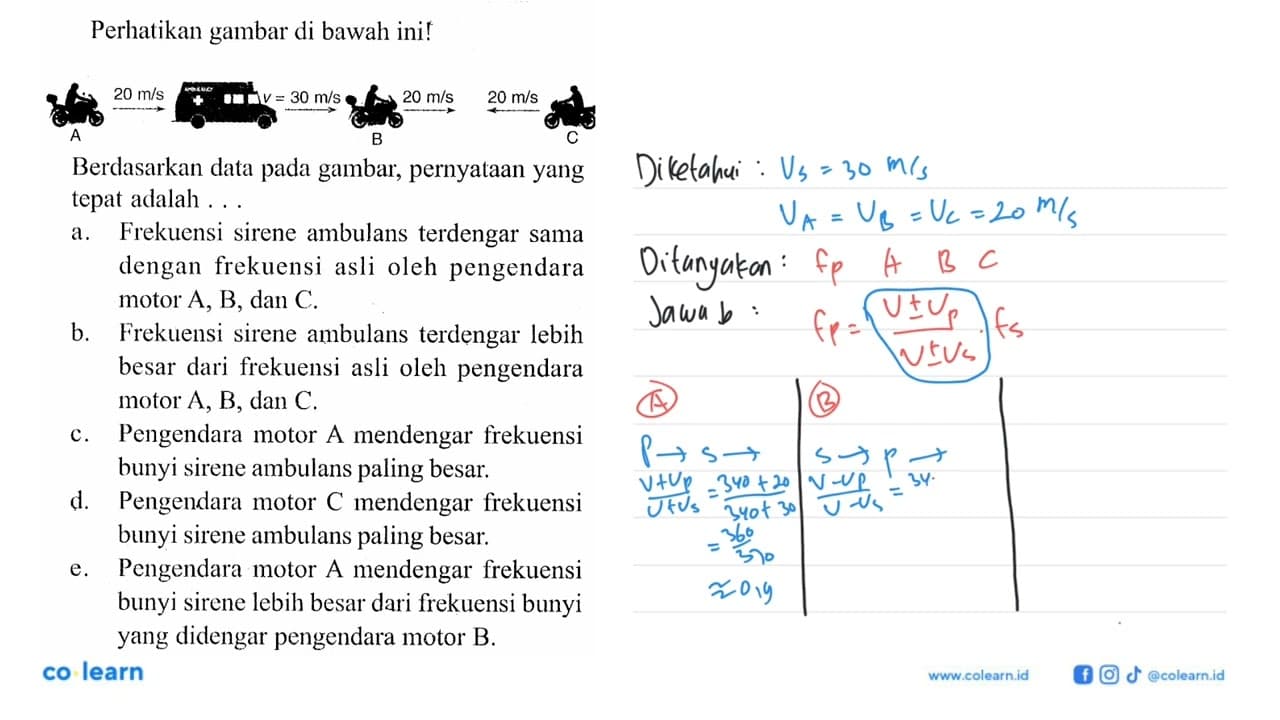 Perhatikan gambar di bawah ini!
20 m/s
v = 30 m/s
20 m/s
20 m/s
A
B
C
Berdasarkan data pada gambar, pernyataan yang
tepat adalah . . .
a. Frekuensi sirene ambulans terdengar sama
dengan frekuensi asli oleh pengendara
motor A, B, dan C.
b. Frekuensi sirene ambulans terdengar lebih
besar dari frekuensi asli oleh pengendara
motor A, B, dan C.
c. Pengendara motor A mendengar frekuensi
bunyi sirene ambulans paling besar.
d. Pengendara motor C mendengar frekuensi
bunyi sirene ambulans paling besar.
e. Pengendara motor A mendengar frekuensi
bunyi sirene lebih besar dari frekuensi bunyi
yang didengar pengendara motor B.
Diketahui : Vs = 30 m/s
VA = VB = VC = 20 m/s
Ditanyakan : fp A B C
Jawab :
fp = (V ± Vp)/(V ± Vs) . fs
A
P → S →
(V + Vp)/(V + Vs) = (340 + 20)/(340 + 30)
= 360/370
≈ 0,9
B
S → P →
(V - Vp)/(V - Vs) = 34
co learn
www.colearn.id
@colearn.id